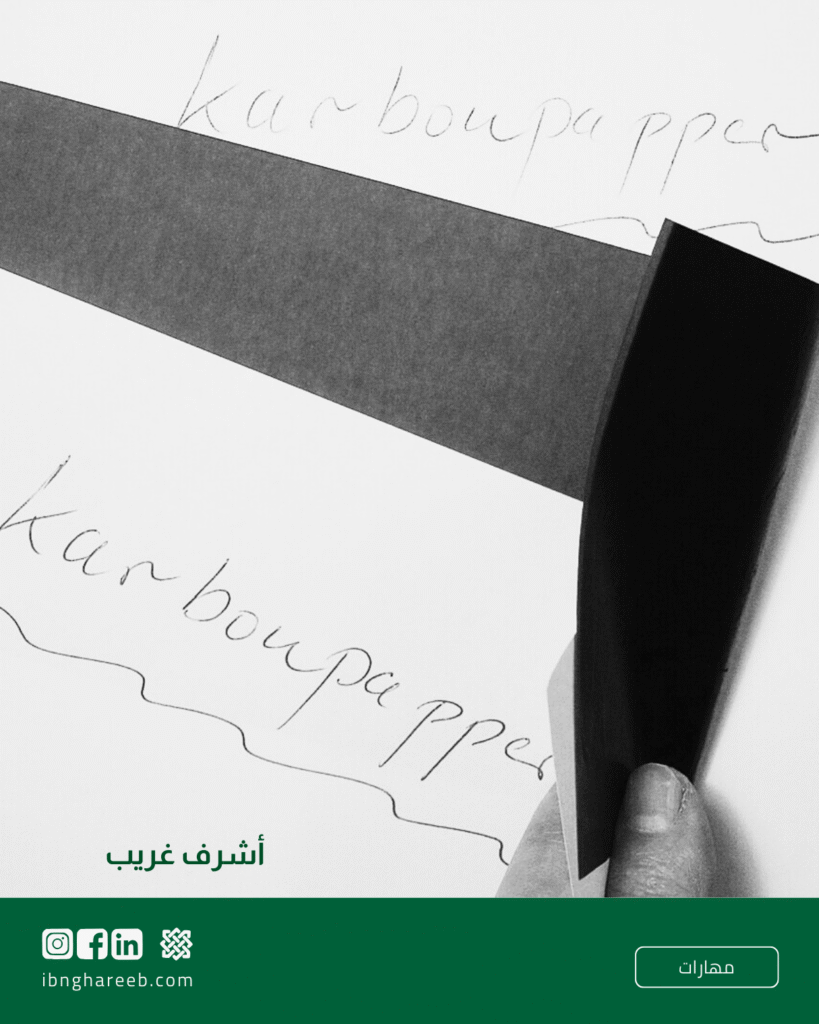 karboupapper
karboupapper
أشرف غريب
ibnghareeb.com
مهارات